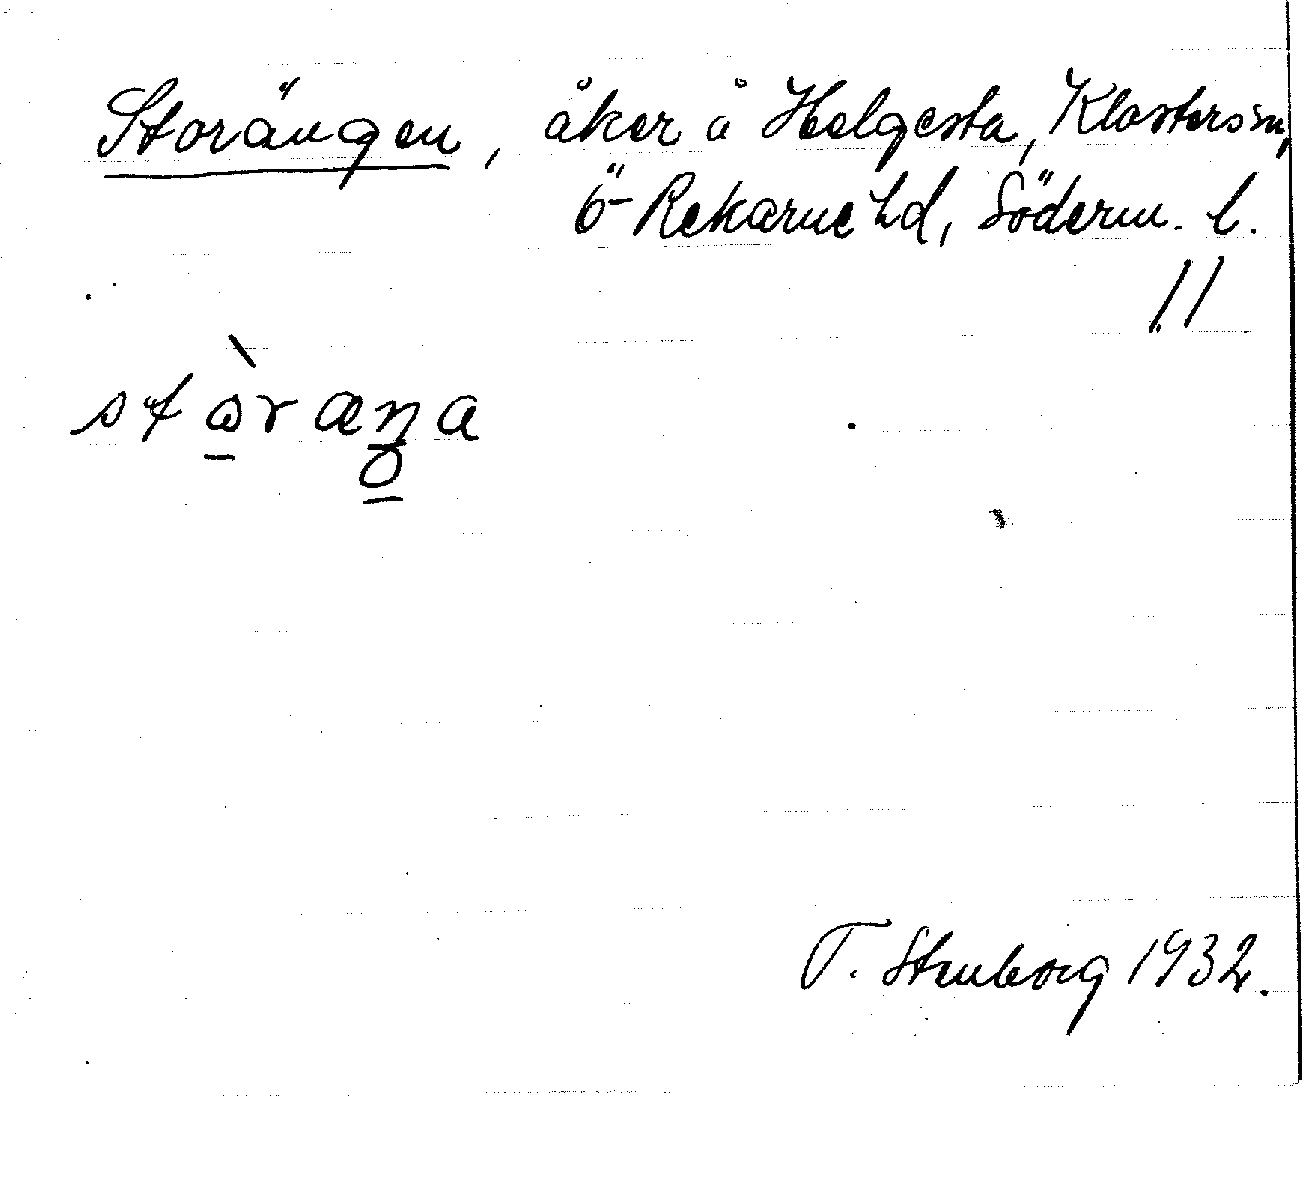 Storängen, åker å Helgesta, Klosters sn,
Ö-Rekarne hd, Söderm. l.
11
T. Stenborg 1932.